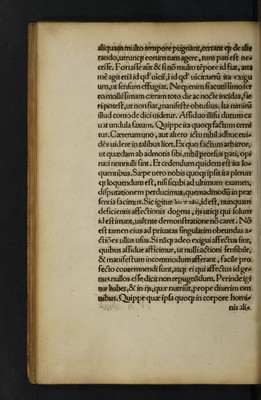 aliquam multo tempore pugnant, certant ep de alte
rando, utrunq; eorum tum agere, tum pati est ne
cesse. Fortasse aūt & si nō multo tēpore id fiat, atta
mē agit etiā id qd' uicit, i id qd' uicitur ita exigu
um, ut sensum effugiat. Neq; enim si acutissimo fer
ro mollissimam ceram toto die ac nocte incidas, fie
ri potest, ut non fiat, manifeste obtusius. Ita nimirū
illud como de dici uidetur. Assiduo illisu durum ca
uat undula saxum. Quippe ita quoq; factum cerni
tur. Cæterum uno, aut altero ictu nihil adhuc eui-
dēs uidere in talibus licet. Ex quo factum arbitror,
ut quædam ab admotis sibi, nihil prorsus pati, opi
nati nonnulli sint. Et cedendum quidem est ita lo-
quentibus. Sæpe uero nobis quoq; ipsis ita plerun
q; loquendum est, nisi sicubi ad ultimum examen,
disputationem perducimus, quemadmodū in præ
sentia facimus. Sic igitur id est, nunquam
deficientis affectionis dogma, ijs utiq; qui solum
id estimant, ualente demonstratione nō caret. Nō
est tamen eius ad priuatas singulatim obeundas a-
ctiōes ullus usus. Si nāq; adeo exigui affectus sint,
quibus assidue afficimur, ut nulli actioni sensibile,
& manifestum incommodum afferant, facile pro
fecto contemnendi sunt, atq; ei qui affectus id ge-
nus nullos esse dicit non repugnādum. Perinde igi
tur habet, & in ijs, quæ nutriūt, prope dixerim om
nibus. Quippe quæ ipsa quoq; in corpore homi-
nis alis-